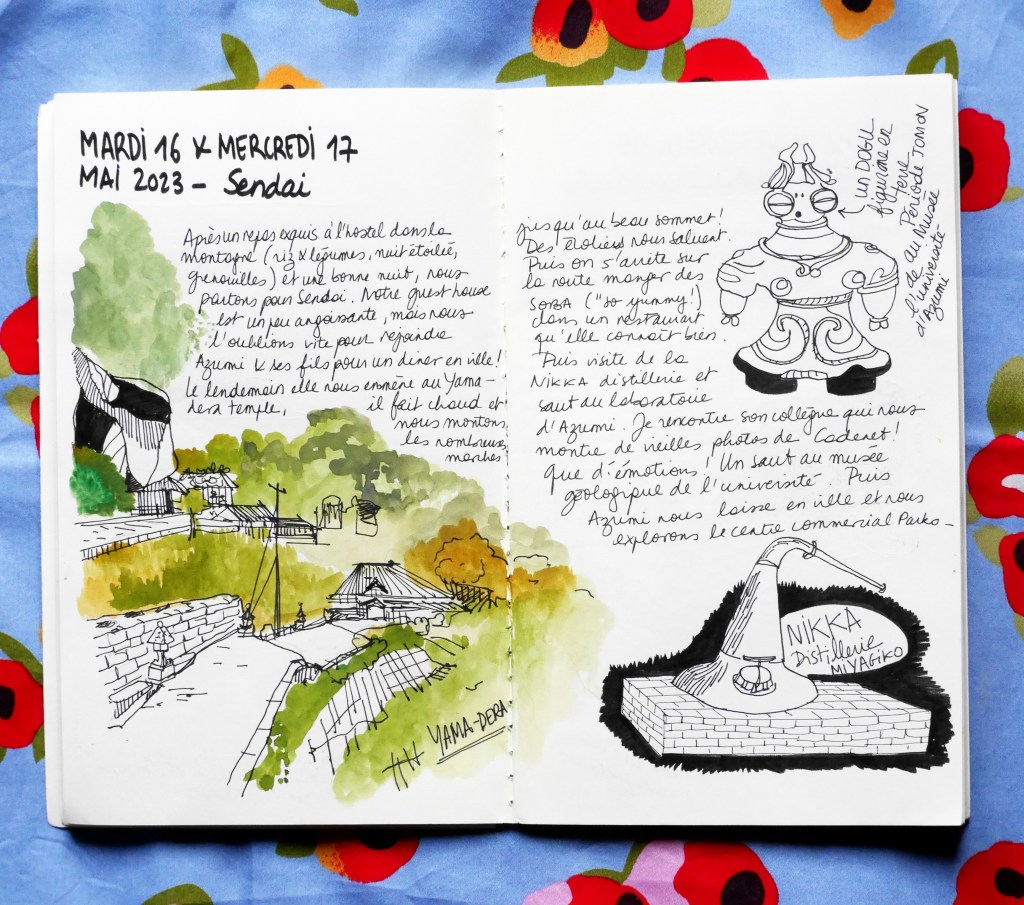 MARDI 16 & MERCREDI 17
MAI 2023 - Sendai
Après un repas exquis à l'hostel dans la
montagne (riz & légumes, nuit étoilée,
grenouilles) et une bonne nuit, nous
partons pour Sendai. Notre guest house
est un peu angoissante, mais nous
l'oublions vite pour rejoindre
Azumi & ses fils pour un diner en ville!
Le lendemain elle nous emmène au Yama-
dera temple, il fait chaud et
nous montons
les nombreuses
marches
YAMA-DERA
jusqu'au beau sommet!
Des écoliers nous saluent.
Puis on s'arrête sur
la route manger des
SOBA ("so yummy!)
dans un restaurant
qu'elle connaît bien.
Puis visite de la
NIKKA distillerie et
saut au laboratoire
d'Azumi. Je rencontre son collègue qui nous
montre de vieilles photos de Cadenet!
Que d'émotions! Un saut au musée
géologique de l'université. Puis
Azumi nous laisse en ville et nous
explorons le centre commercial Parko-
un DOGU
figurine en
terre
Période JOMON
au Musée
l'université
d'Azumi
NIKKA
Distillerie
MIYAGIKO